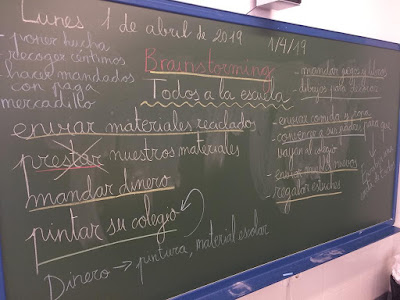 Lunes 1 de abril de 2019
1/4/19
- poner hucha
- recoger céntimos
- hacer mandados
con paga
mercadillo
Brainstorming
Todos a la escuela
enviar materiales reciclados
prestar nuestros materiales
mandar dinero
pintar su colegio
Dinero → pintura, material escolar
- mandar
- dibujos para
- enviar comida y ropa
- convencer a sus padres para que
vayan al colegio
- enviar
- regalar estuches